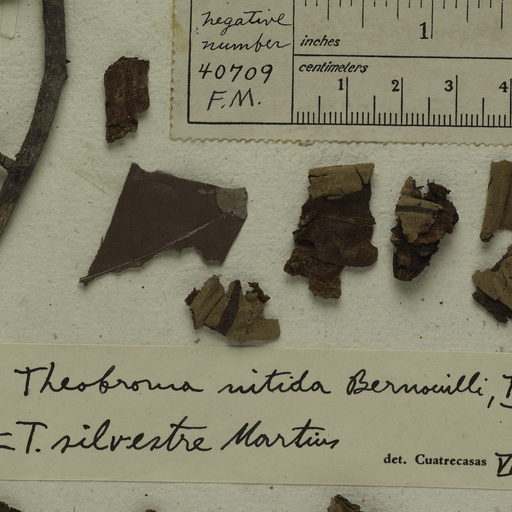 negative
number
40709
F.M.
inches
1
centimeters
1 2 3 4
Theobroma nitida Bernouilli,
=T. silvestre Martius
det. Cuatrecasas